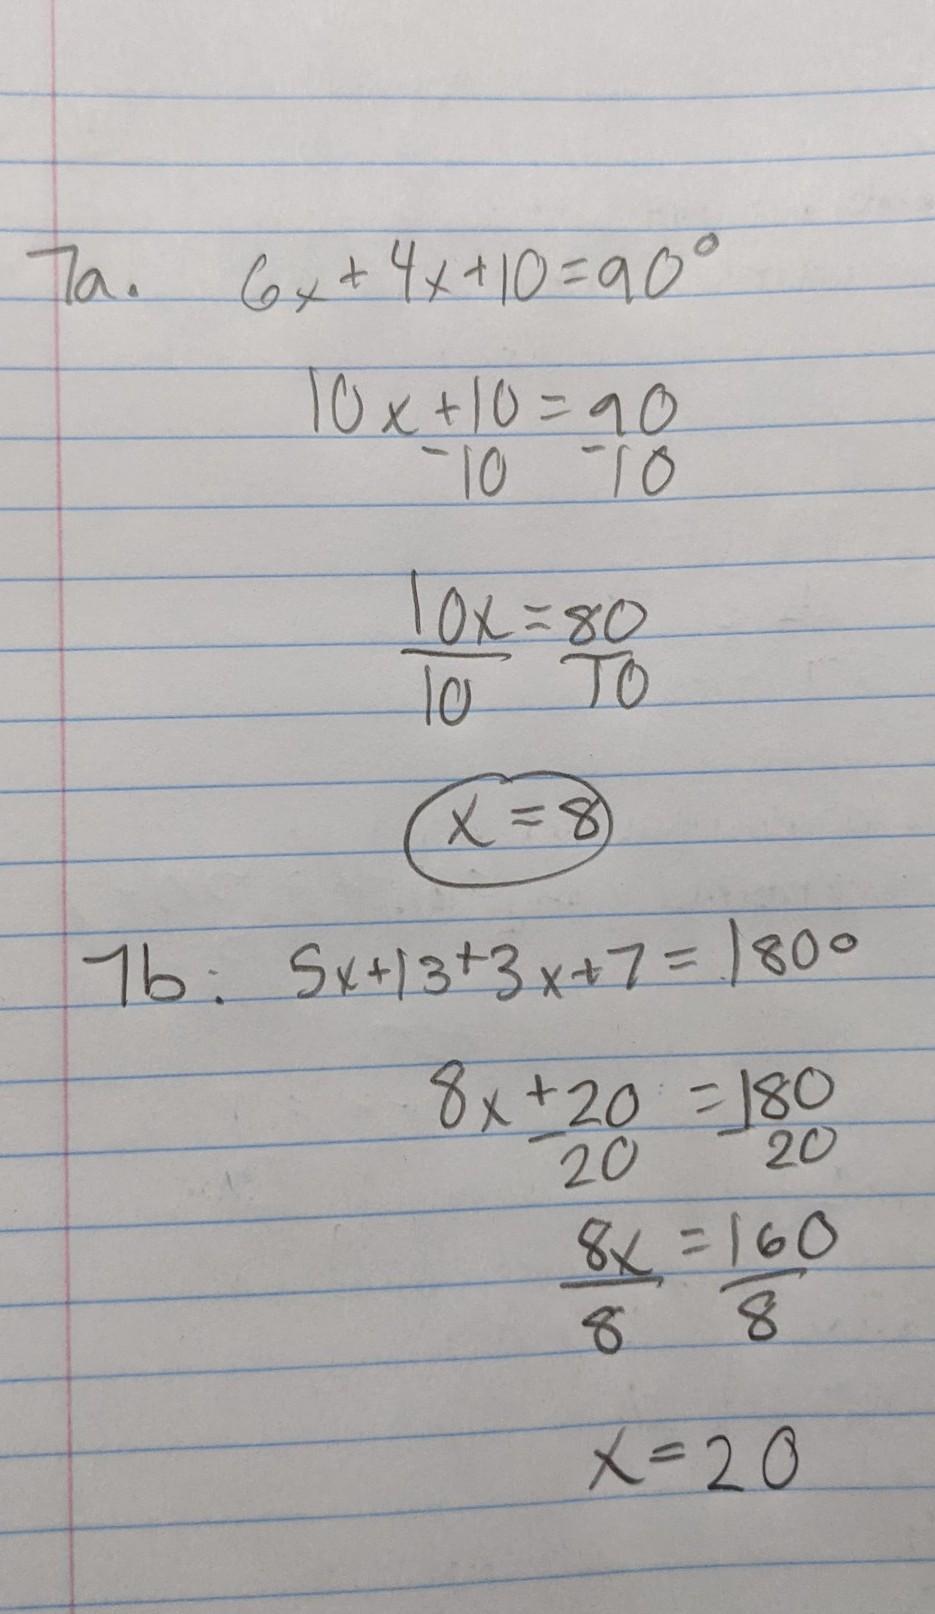 7a. 6x+4x+10=90°
10x+10=90
-10 -10
10x=80
10 10
x=8
7b: 5x+13+3x+7=180°
8x+20=180
-20 -20
8x=160
8 8
x=20